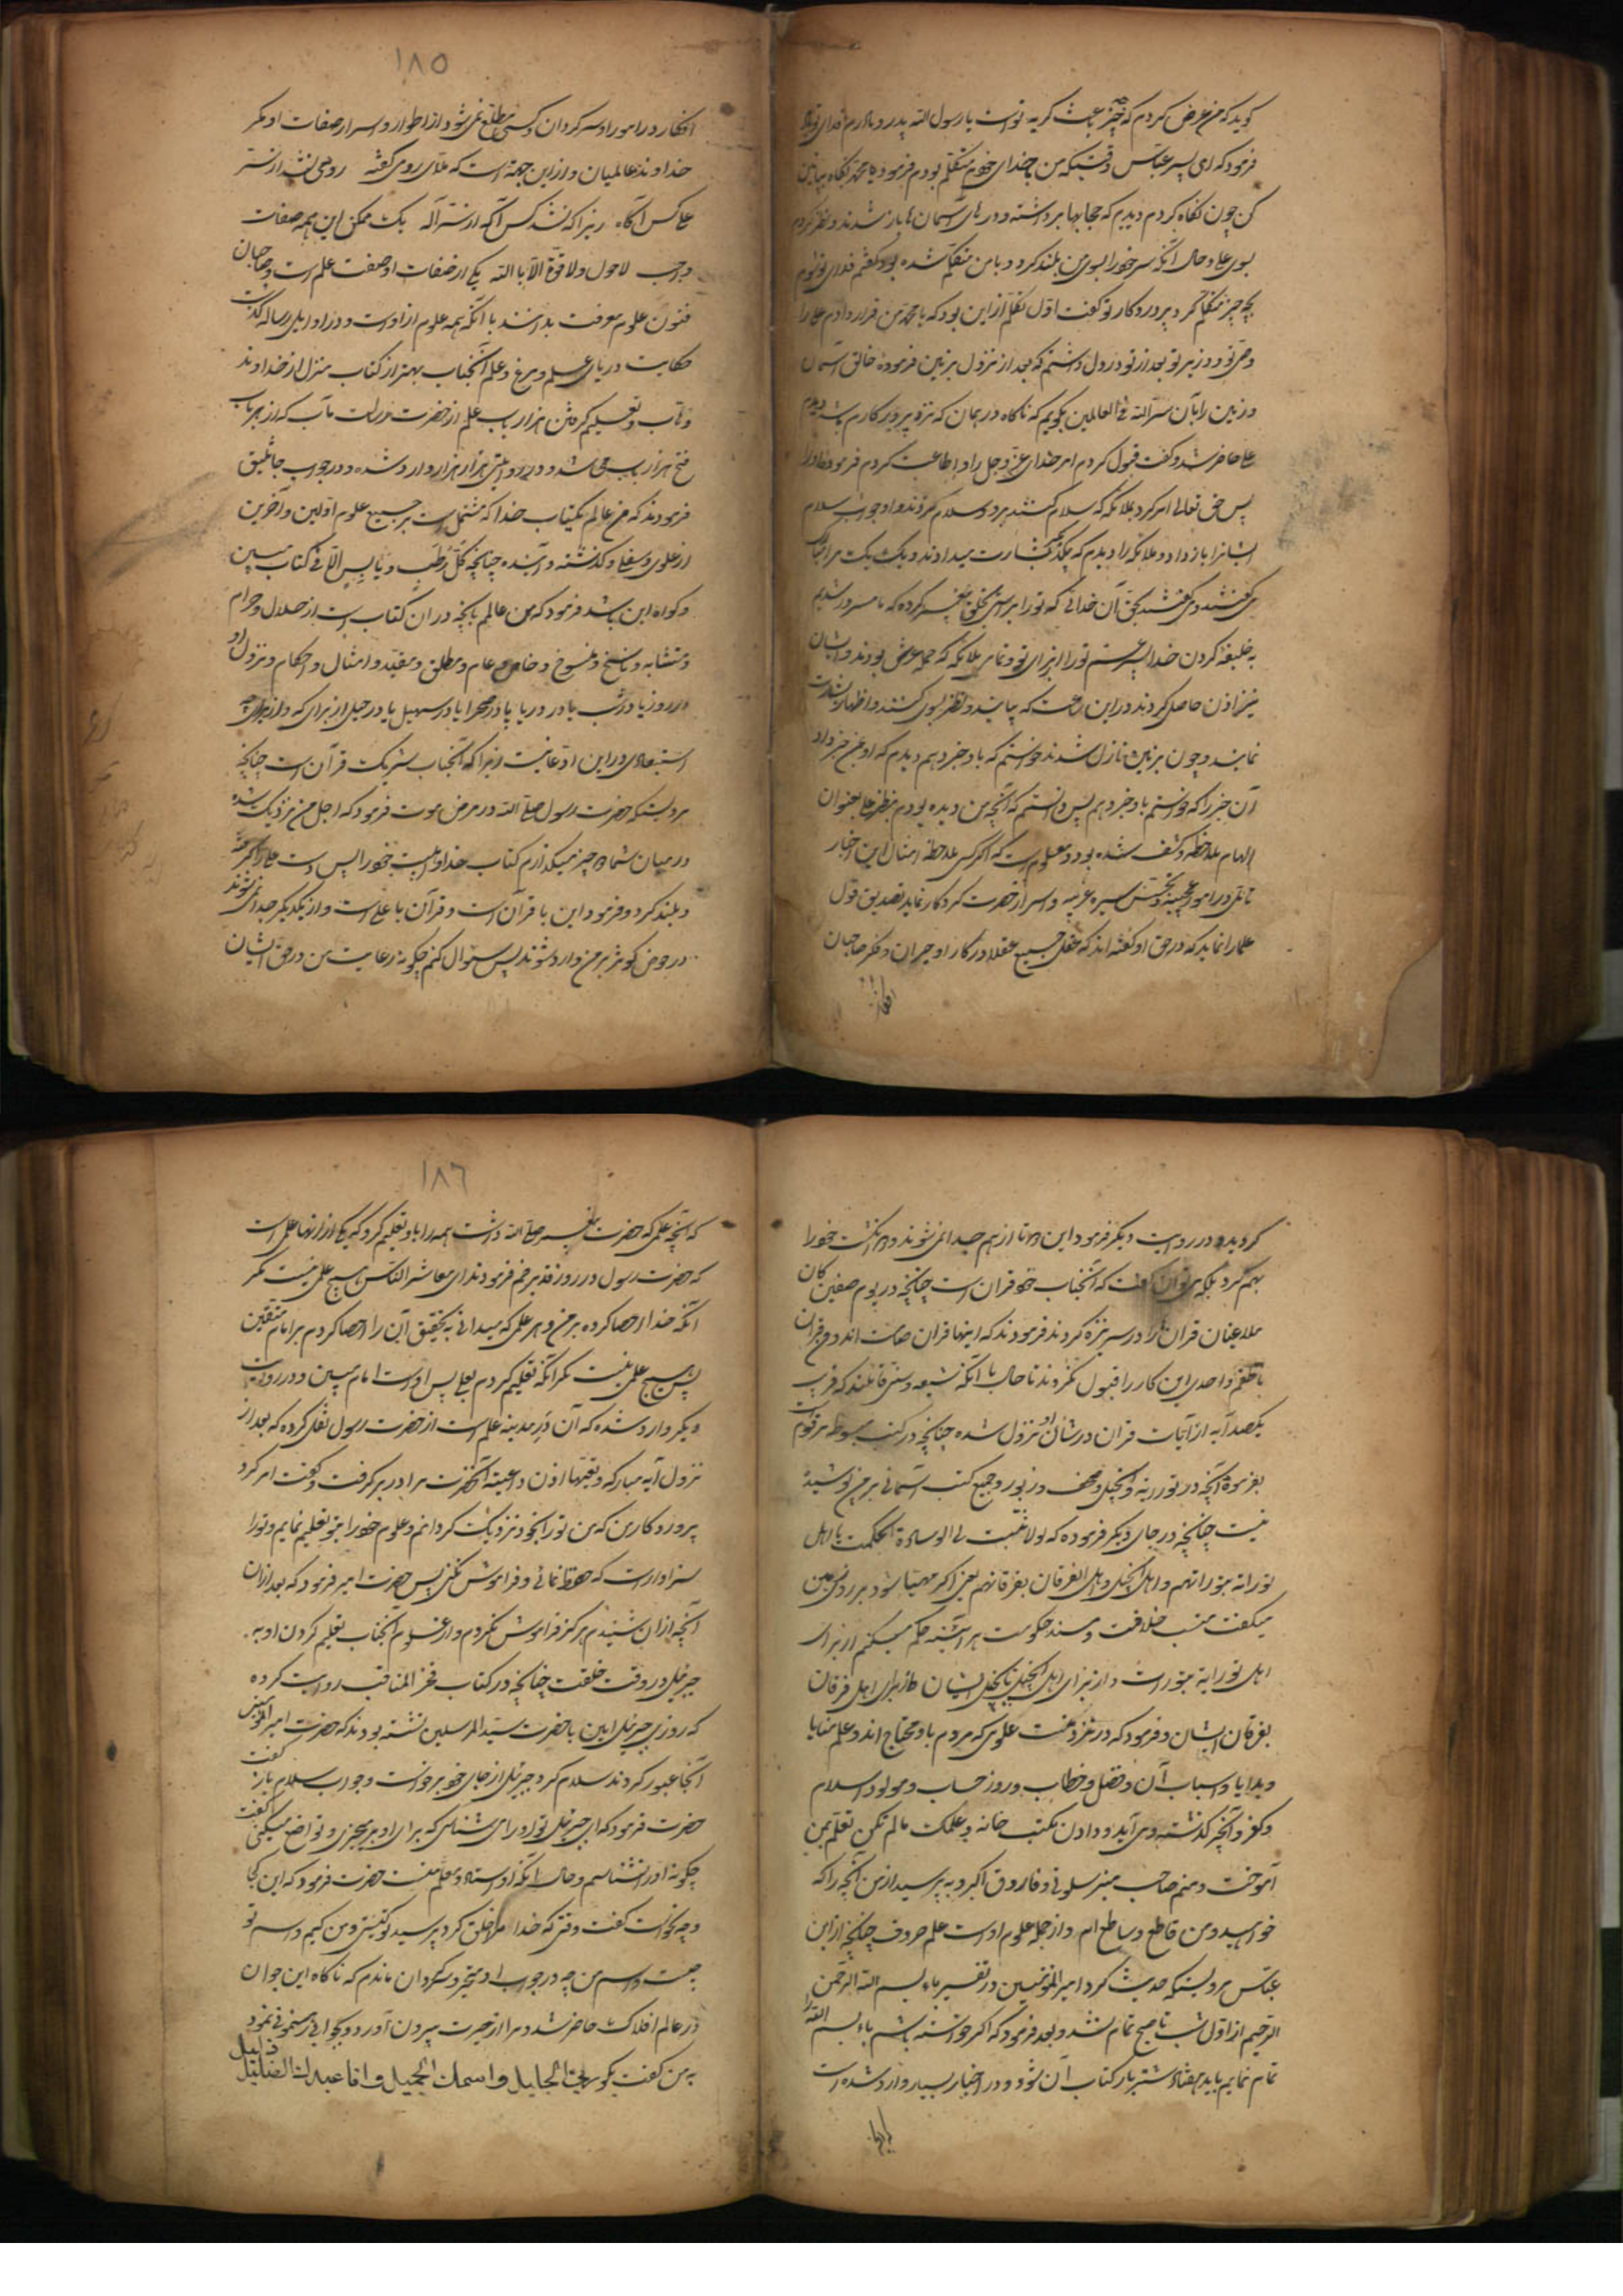 گوید که من عرض کردم که چه چیز باعث گریه تو است یا رسول الله پدر و مادرم فدای تو باد
فرمود که ای پسر عباس وقتیکه من با خدای خود متکلم بودم فرمود یا محمد نگاه بپائین
کن چون نگاه کردم دیدم که حجابها برداشته و درهای آسمان ها باز شدند و نظر کردم
بسوی علی و حال آنکه سر خود را بسوی من بلند کرد و با من متکلم شده بود گفتم فدای تو شوم
بچه چیز متکلم کرد پروردگار تو گفت اول تکلم از این بود که یا محمد من قرار دادم علی را
وصی تو و وزیر تو بعد از تو در دل داشتم که بعد از نزول بزمین فرموده خالق آسمان
و زمین را بآن سر الله فی العالمین بگویم که ناگاه در همان که نزد پروردگارم باشم دیدم
علی حاضر شد و گفت قبول کردم امر خدای عز و جل را و اطاعت کردم فرموده او را
پس حق تعالی امر کرد ملائکه که سلام کنند برو و سلام کردند و او جواب سلام
ایشانرا باز داد و ملائکه را دیدم که بیکدیگر بشارت میدادند و یک یک مرا
می گفتند و می گفتند بحق آن خدائی که تو را براستی بخلق پیغمبر کرده که ما مسرور شدیم
به خلیفه کردن خدا پسر عمت تو را از برای تو و تمامی ملائکه که حمله عرش بودند و ایشان
نیز اذن حاصل کردند در این ساعت که بیایند و نظر بسوی کنند و اظهار بشارت
نمایند و چون بزمین نازل شدند خواستم که باو خبر دهم دیدم که او بمن خبر داد
آن خبر را که خواستم باو خبر دهم پس دانستم که آنچه من دیده بودم بنظر علی بعنوان
الهام ملاحظه و کشف شده بود و معلوم است که اگر کسی ملاحظه امثال این اخبار
تأمل در امور عجیبه و سیر غریبه و اسرار حضرت کردگار نماید تصدیق قول
علما را نماید که در حق او گفته اند که عقل جمیع عقلا در کار او حیران و فکر صاحبان
افکار
۱۸۵
افکار در امور او سرگردان و کسی مطلع نمی شود از اطوار و اسرار صفات او مگر
خداوند عالمیان و از این جهة است که ملای رومی گفته رومی نشد از سر
علی کس آگاه زیرا که نشد کس آگه از سر آله یک ممکن این همه صفات
واجب لا حول و لا قوة الا بالله یکی از صفات او صفت علم است و صاحبان
فنون علوم معرفت بدانند با آنکه همه علوم از او است و در اوایل رساله گذشت
حکایت دریای علم و مرغ و علم آنجناب بهتر از کتاب منزل از خداوند
وهاب و تعلیم گرفتن هزار باب علم از حضرت رسالت مآب که از هر باب
فتح هزار باب می شد و در روایتی هزار هزار وارد شده و در جواب جاثلیق
فرمودند که من عالم بکتاب خدا که مشتمل است بر جمیع علوم اولین و آخرین
از علوی و سفلی و گذشته و آینده چنانچه کل رطب و یابس الا فی کتاب مبین
و گواه این باشد فرمود که من عالم بآنچه در آن کتاب است از حلال و حرام
و متشابه و ناسخ و منسوخ و خاص و عام و مطلق و مقید و امثال و احکام و نزول او
در روز یا در شب یا در دریا یا در صحرا یا در سهیل یا در جبل از برای که و از برای چه
استبعادی در این ادعا نیست زیرا که آنجناب شریک قرآن است چنانچه
مرویست که حضرت رسول صلی الله در مرض موت فرمود که اجل من نزدیک شده
در میان شما دو چیز میگذارم کتاب خدا و اهلبیت خود را پس دست علی را گرفته
و بلند کرد و فرمود این با قرآن است و قرآن با علی است و از یکدیگر جدا نمی شوند
در حوض کوثر بر من وارد شوند پس سؤال کنم چگونه رعایت من در حق ایشان
گردید و در روایت دیگر فرمود این دو تا از هم جدا نمی شوند و دو انگشت خود را
بهم کرد بلکه می توان گفت که آنجناب خود قران است چنانچه در یوم صفین کان
ملاعینان قران ها را در سر نیزه کردند فرمودند که اینها قران صامت اند و من قران
ناطقم و احدی این کار را قبول نکردند تا حال با آنکه شیعه و سنی قائلند که قریب
یکصد آیه از آیات قران در شان او نزول شده چنانچه در کتب مبسوطه مرقوم است
بفرموده آنچه در توریه و انجیل و صحف و زبور و جمیع کتب آسمانی بر من پوشیده
نیست چنانچه در جای دیگر فرموده که لولا ثنیت لی الوسادة لحکمت یا اهل
توراته بتوراتهم و اهل انجیل و اهل الفرقان بفرقانهم یعنی اگر مهیا شود بر روی من
میگفت منسب خلافت و مسند حکومت هر آینه حکم میکنم از برای
اهل توراية بتورات و از برای اهل انجیل بانجیل ایشان و از برای اهل فرقان
بفرقان ایشان و فرمود که در نزد منست علومی که مردم باو محتاج اند و علم منایا
و بلایا و اسباب آن و فصل خطاب و روز حساب و مولود اسلام
و کفر و آنچه گذشته و می آید و دادن مکتب خانه و علمک مالم تکن تعلم بمن
آموخت و منم صاحب منبر سلونی و فاروق اکبر و به پرسید از من آنچه را که
خواهید و من قاطع و ساطع ام و از جمله علوم او است علم حروف چنانچه از ابن
عباس مرویست که حدیث کرد امیر المؤمنین در تفسیر باء بسم الله الرحمن
الرحیم از اول شب تا صبح تمام نشد و بعد فرمود که اگر خواسته باشم باء بسم الله را
تمام نمایم باید هفتاد شتر بار کتاب آن شود و در اخبار بسیار وارد شده است
۱۸۶
که آنچه علمی که حضرت پیغمبر صلی الله داشت همه را باو تعلیم کرد که یکی از آنها علمی است
که حضرت رسول در روز غدیر خم فرمودند ای معاشر الناس هیچ علمی نیست مگر
آنکه خدا احصا کرده بر من و هر علمی که میدانی به تحقیق آن را احصا کردم بر امام متقین
پس هیچ علمی نیست مگر آنکه تعلیم کردم بعلی پس او است امام مبین و در روایت
دیگر وارد شده که آن در مدینه علم است از حضرت رسول نقل کرده که بعد از
نزول آیه مبارکه و تعیها اذن واعیة آنحضرت مرا در بر گرفت و گفت امر کرد
پروردگار من که من تو را بخود نزدیک گردانم و علوم خود را بتو تعلیم نمایم و تو را
سزاوار است که حفظ نمائی و فراموش نکنی پس حضرت امیر فرمود که بعد از آن
آنچه از آن شنیدم هرگز فراموش نکردم و از علوم آنجناب تعلیم کردن او به
جبرئیل در وقت خلقت چنانچه در کتاب فخر المناقب روایت کرده
که روزی جبرئیل امین با حضرت سید المرسلین نشسته بودند که حضرت امیر المؤمنین
آنجا عبور کردند سلام کرد و جبرئیل از جای خود برخواست و جواب سلام باز گفت
حضرت فرمود که ای جبرئیل تو او را می شناسی که برای او برمیخیزی و تواضع میکنی گفت
چگونه او را نشناسم و حال آنکه او استاد و معلم منست حضرت فرمود که این کی
و چه نحو است گفت وقتی که خدا مرا خلق کرد پرسید تو کیستی و من کیم و اسم تو
چیست و اسم من چه در جواب او متحیر و سرگردان ماندم که ناگاه این جوان
در عالم افلاک حاضر شد و مرا از حیرت بیرون آورد و بجوابی رهنمونی نمود
به من گفت بگو ربی الجلیل و اسمک الجمیل و انا عبدک الذلیل